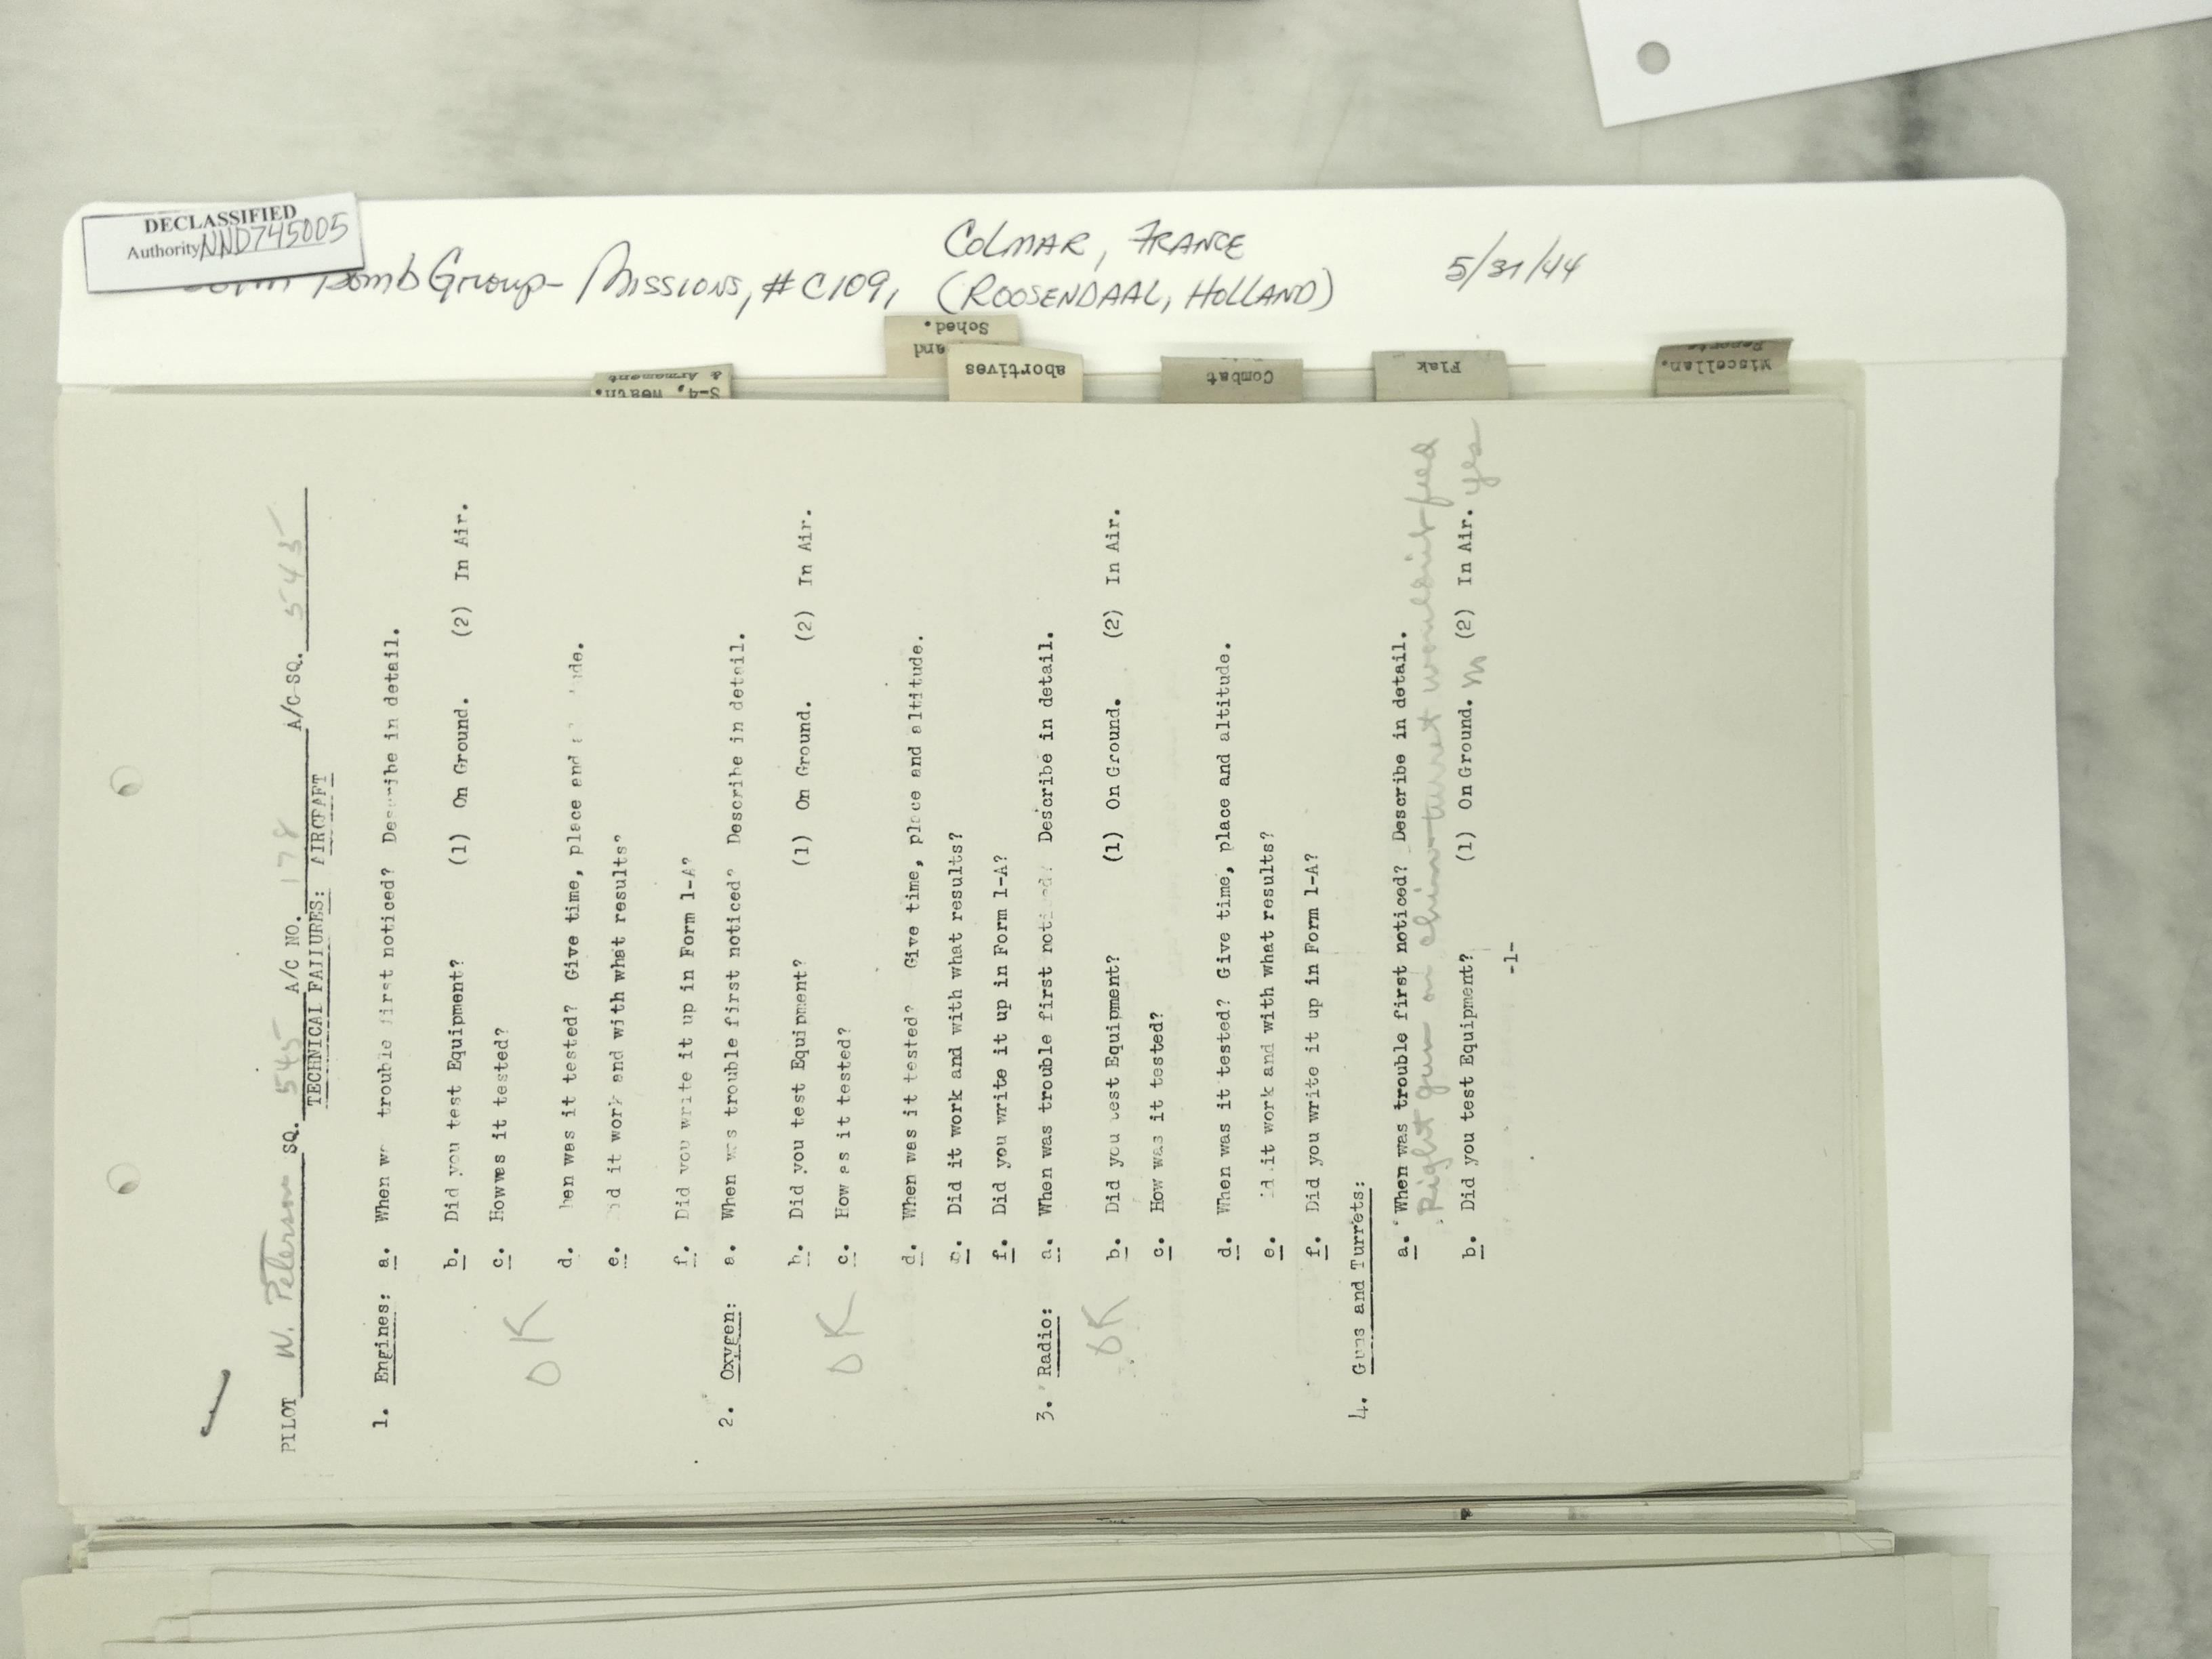 DECLASSIFIED
Authority NND745005
Bomb Group - Missions, #C109, COLMAR, FRANCE
(ROOSENDAAL, HOLLAND)
5/31/44
Sched.
and
abortives
S-4, Weath.
& Armament
Combat
Flak
Miscellan.
Reports
PILOT W. Peterson SQ. 545 A/C NO. 178 A/C SQ. 545
TECHNICAL FAILURES: AIRCRAFT
1. Engines: a. When trouble first noticed? Describe in detail.
b. Did you test Equipment? (1) On Ground. (2) In Air.
c. How was it tested?
OK
d. hen was it tested? Give time, place and ude.
e. d it work and with what results?
f. Did you write it up in Form 1-A?
2. Oxygen: a. When was trouble first noticed? Describe in detail.
b. Did you test Equipment? (1) On Ground. (2) In Air.
c. How as it tested?
OK
d. When was it tested? Give time, place and altitude.
e. Did it work and with what results?
f. Did you write it up in Form 1-A?
3. Radio: a. When was trouble first noticed? Describe in detail.
b. Did you test Equipment? (1) On Ground. (2) In Air.
OK
c. How was it tested?
d. When was it tested? Give time, place and altitude.
e. it work and with what results?
f. Did you write it up in Form 1-A?
4. Guns and Turrets:
a. When was trouble first noticed? Describe in detail.
Right gun on chin turret wouldn't feed
b. Did you test Equipment? (1) On Ground. (2) In Air. yes
-1-